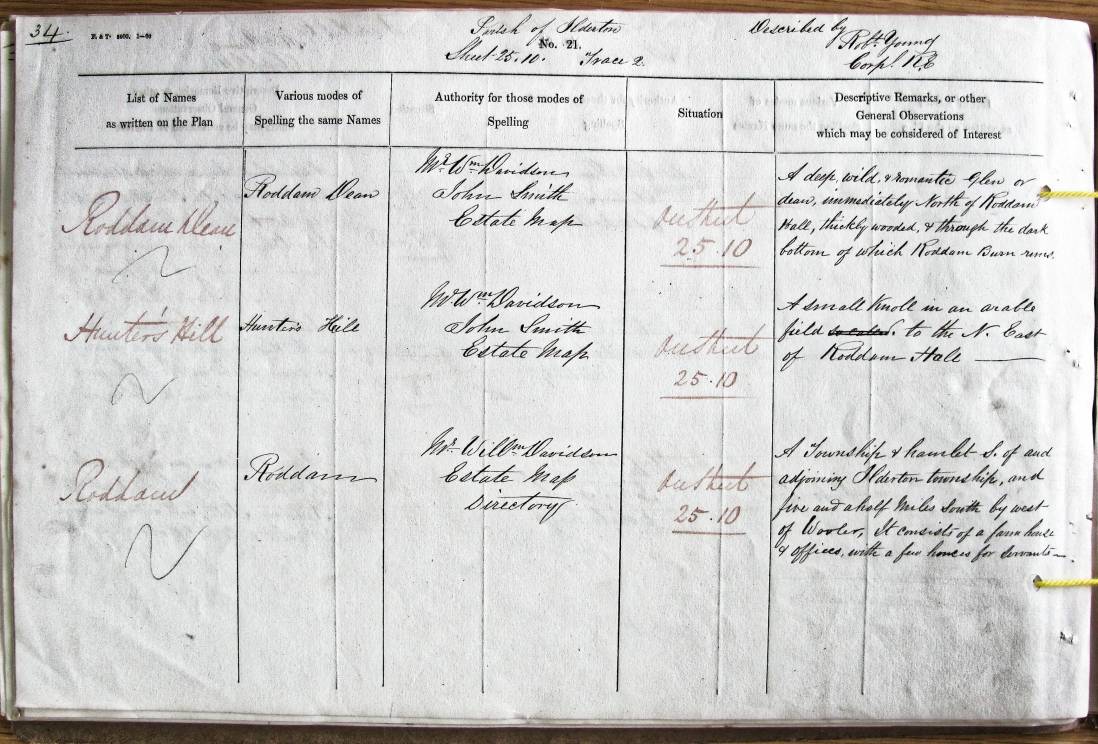 34.
Parish of Ilderton
No. 21.
Sheet 25.10. Trace 2.
Described by
Robt. Young
Corpl. R.E
List of Names
as written on the Plan
Various modes of
Spelling the same Names
Authority for those modes of
Spelling
Situation
Descriptive Remarks, or other
General Observations
which may be considered of Interest
Roddam Dean
Roddam Dean
Mr. Wm. Davidson
John Smith
Estate Map
On Sheet
25.10
A deep, wild, & romantic Glen or
dean, immediately North of Roddam
Hall, thickly wooded, & through the dark
bottom of which Roddam Burn runs.
Hunter's Hill
Hunters Hill
Mr. Wm. Davidson
John Smith
Estate Map
On Sheet
25.10
A small Knoll in an arable
field to the N. East
of Roddam Hall
Roddam
Roddam
Mr. Willm. Davidson
Estate Map
Directory
On Sheet
25.10
A Township & hamlet S. of and
adjoining Ilderton township, and
five and a half Miles South by west
of Wooler, It consists of a farm house
& offices, with a few houses for servants